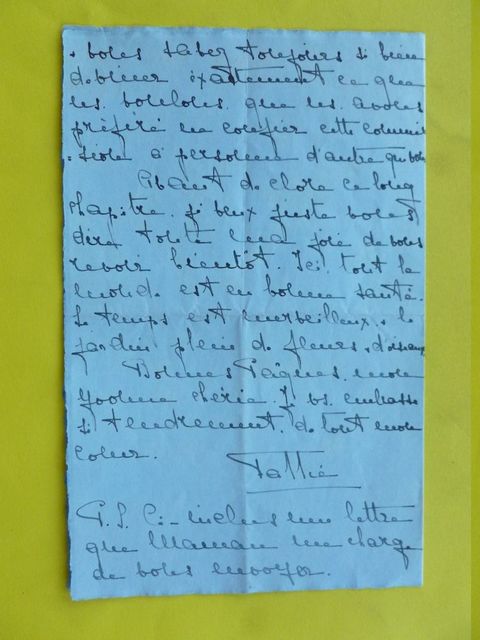 vous savez toujours si bien
donner exactement ce que
les que j'ai
préféré ne confier cette commis
sion à personne d'autre qu'à vous
Avant de clore ce long
chapitre, je veux juste vous
dire toute ma joie de vous
revoir bientôt. Ici tout le
monde est en bonne santé.
Le temps est merveilleux, le
jardin plein de fleurs, d'oiseaux
Bonnes Pâques, mon
Yvonne chérie. Je vs. embrasse
si tendrement, de tout mon
coeur.
P.S. Ci-inclus une lettre
que Maman me charge
de vous envoyer.